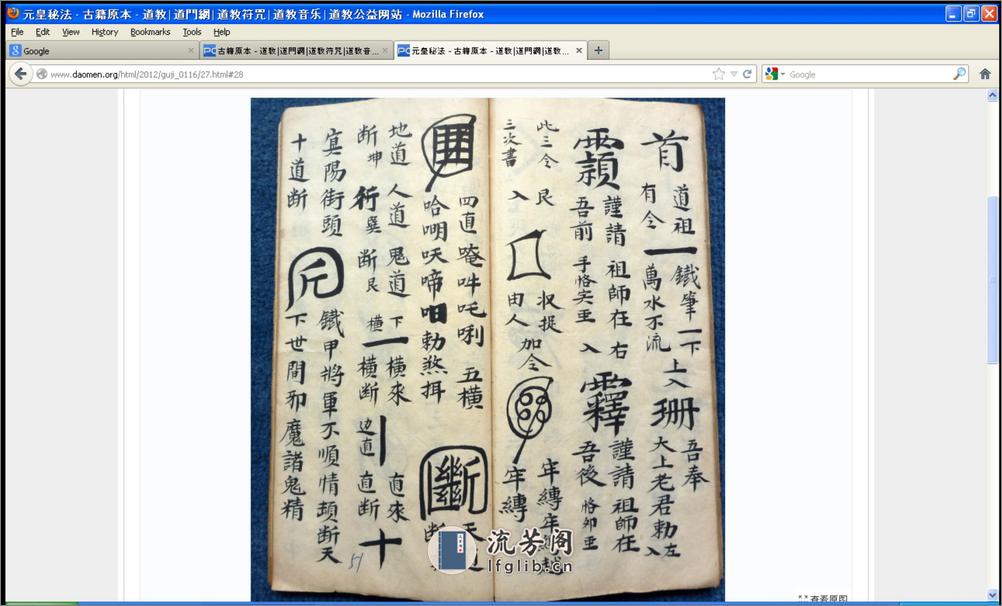 元皇秘法 - 古籍原本 - 道教|道門網|道教符咒|道教音乐|道教公益网站 - Mozilla Firefox
File Edit View History Bookmarks Tools Help
Google
古籍原本 - 道教|道門網|道教符咒|道教音...
元皇秘法 - 古籍原本 - 道教|道門網|道教...
www.daomen.org/html/2012/guji_0116/27.html#28
Google
首
道祖
有令
一
鐵筆一下
萬水不流
上入
珊
吾奉
太上老君勅
左入
謹請祖師在右
吾前
手恪
入
謹請祖師在
吾後
恪卯
此三令
三次書
艮
入
収捉
由人
加令
牢縛牢
牢縛
四直
唵吽吒唎
五橫
哈
㕭啼
勅煞
斷
地道
断坤
人道
行
巽
鬼道
断艮
下
橫
一
橫來
橫断
边直
直來
直断
十
冥陽街頭
十道断
鐵甲將軍不順情
頭断天
下世間邪魔諸鬼精
51
流芳阁
lfglib.cn
查看原图